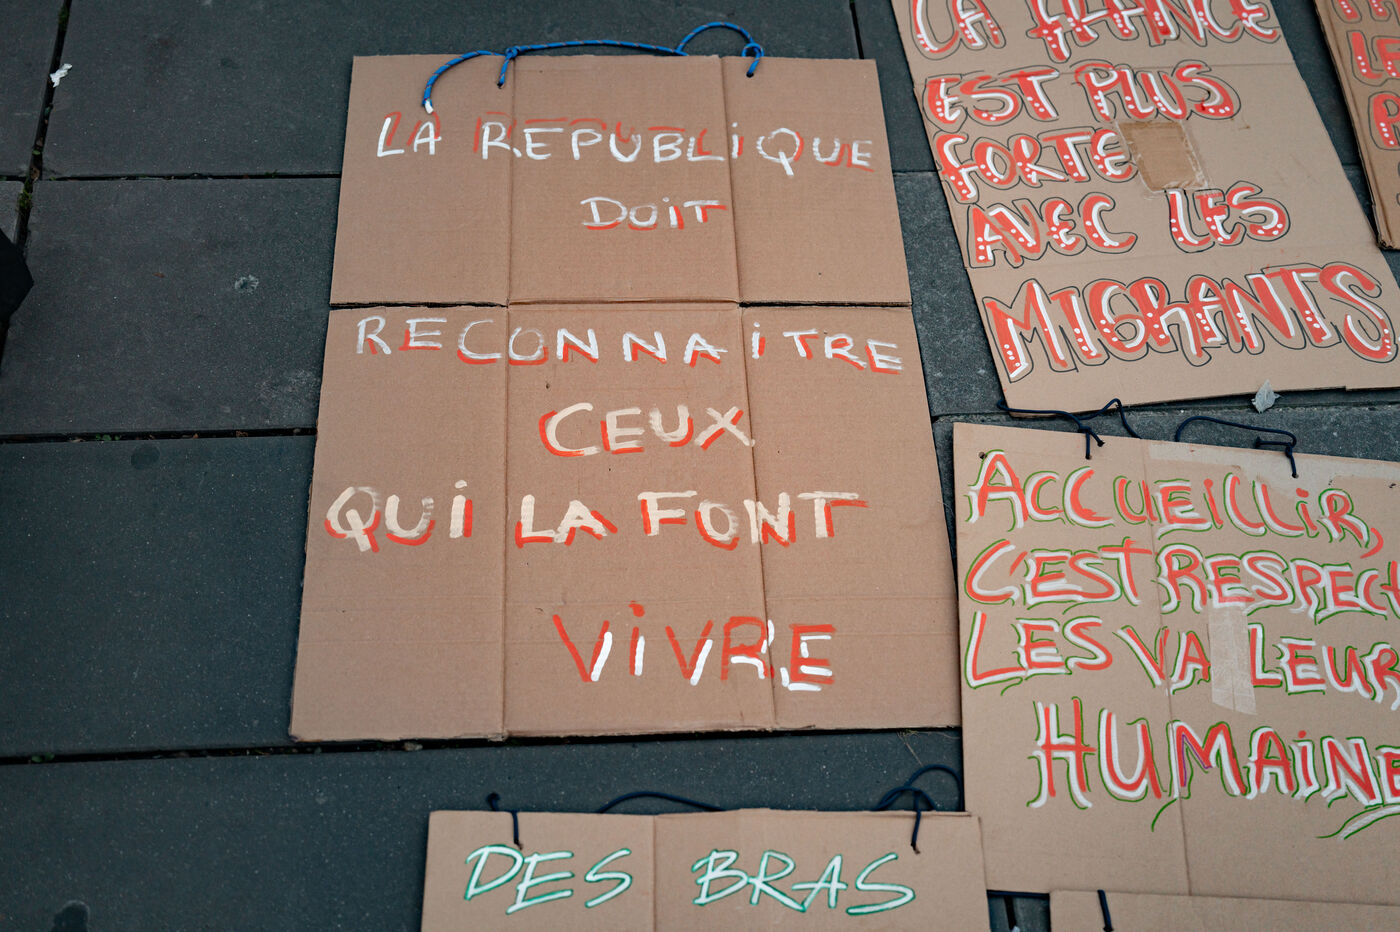 LA REPUBLIQUE
DOIT
RECONNAITRE
CEUX
QUI LA FONT
VIVRE
LA FRANCE
EST PLUS
FORTE
AVEC LES
MIGRANTS
ACCUEILLIR,
C'EST RESPECT
LES VALEUR
HUMAINE
DES BRAS